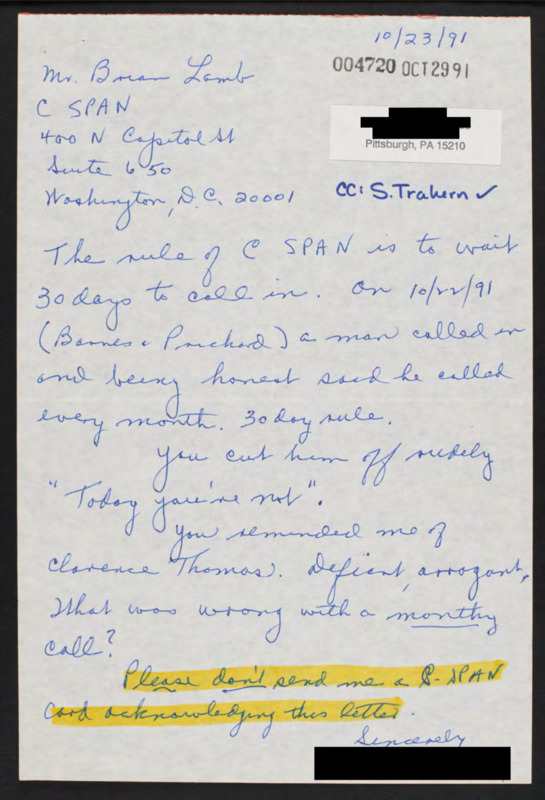 10/23/91
004720 OCT 29 91
Mr. Brian Lamb
C SPAN
400 N Capitol St
Suite 650
Washington, D.C. 20001
Pittsburgh, PA 15210
CC: S. Trahern ✓
The rule of C SPAN is to wait
30 days to call in. On 10/22/91
(Barnes & Prichard) a man called in
and being honest said he called
every month. 30 day rule.
You cut him off rudely
"Today you're not".
You reminded me of
Clarence Thomas. Defiant, arrogant.
What was wrong with a monthly
call?
Please don't send me a C-SPAN
card acknowledging this letter.
Sincerely